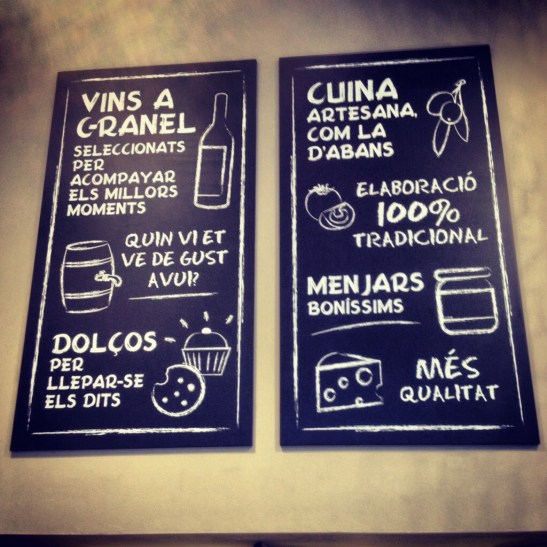 VINS A
GRANEL
SELECCIONATS
PER
ACOMPAYAR
ELS MILLORS
MOMENTS
QUIN VI ET
VE DE GUST
AVUI?
DOLÇOS
PER
LLEPAR-SE
ELS DITS
CUINA
ARTESANA,
COM LA
D'ABANS
ELABORACIÓ
100%
TRADICIONAL
MENJARS
BONÍSSIMS
MÉS
QUALITAT